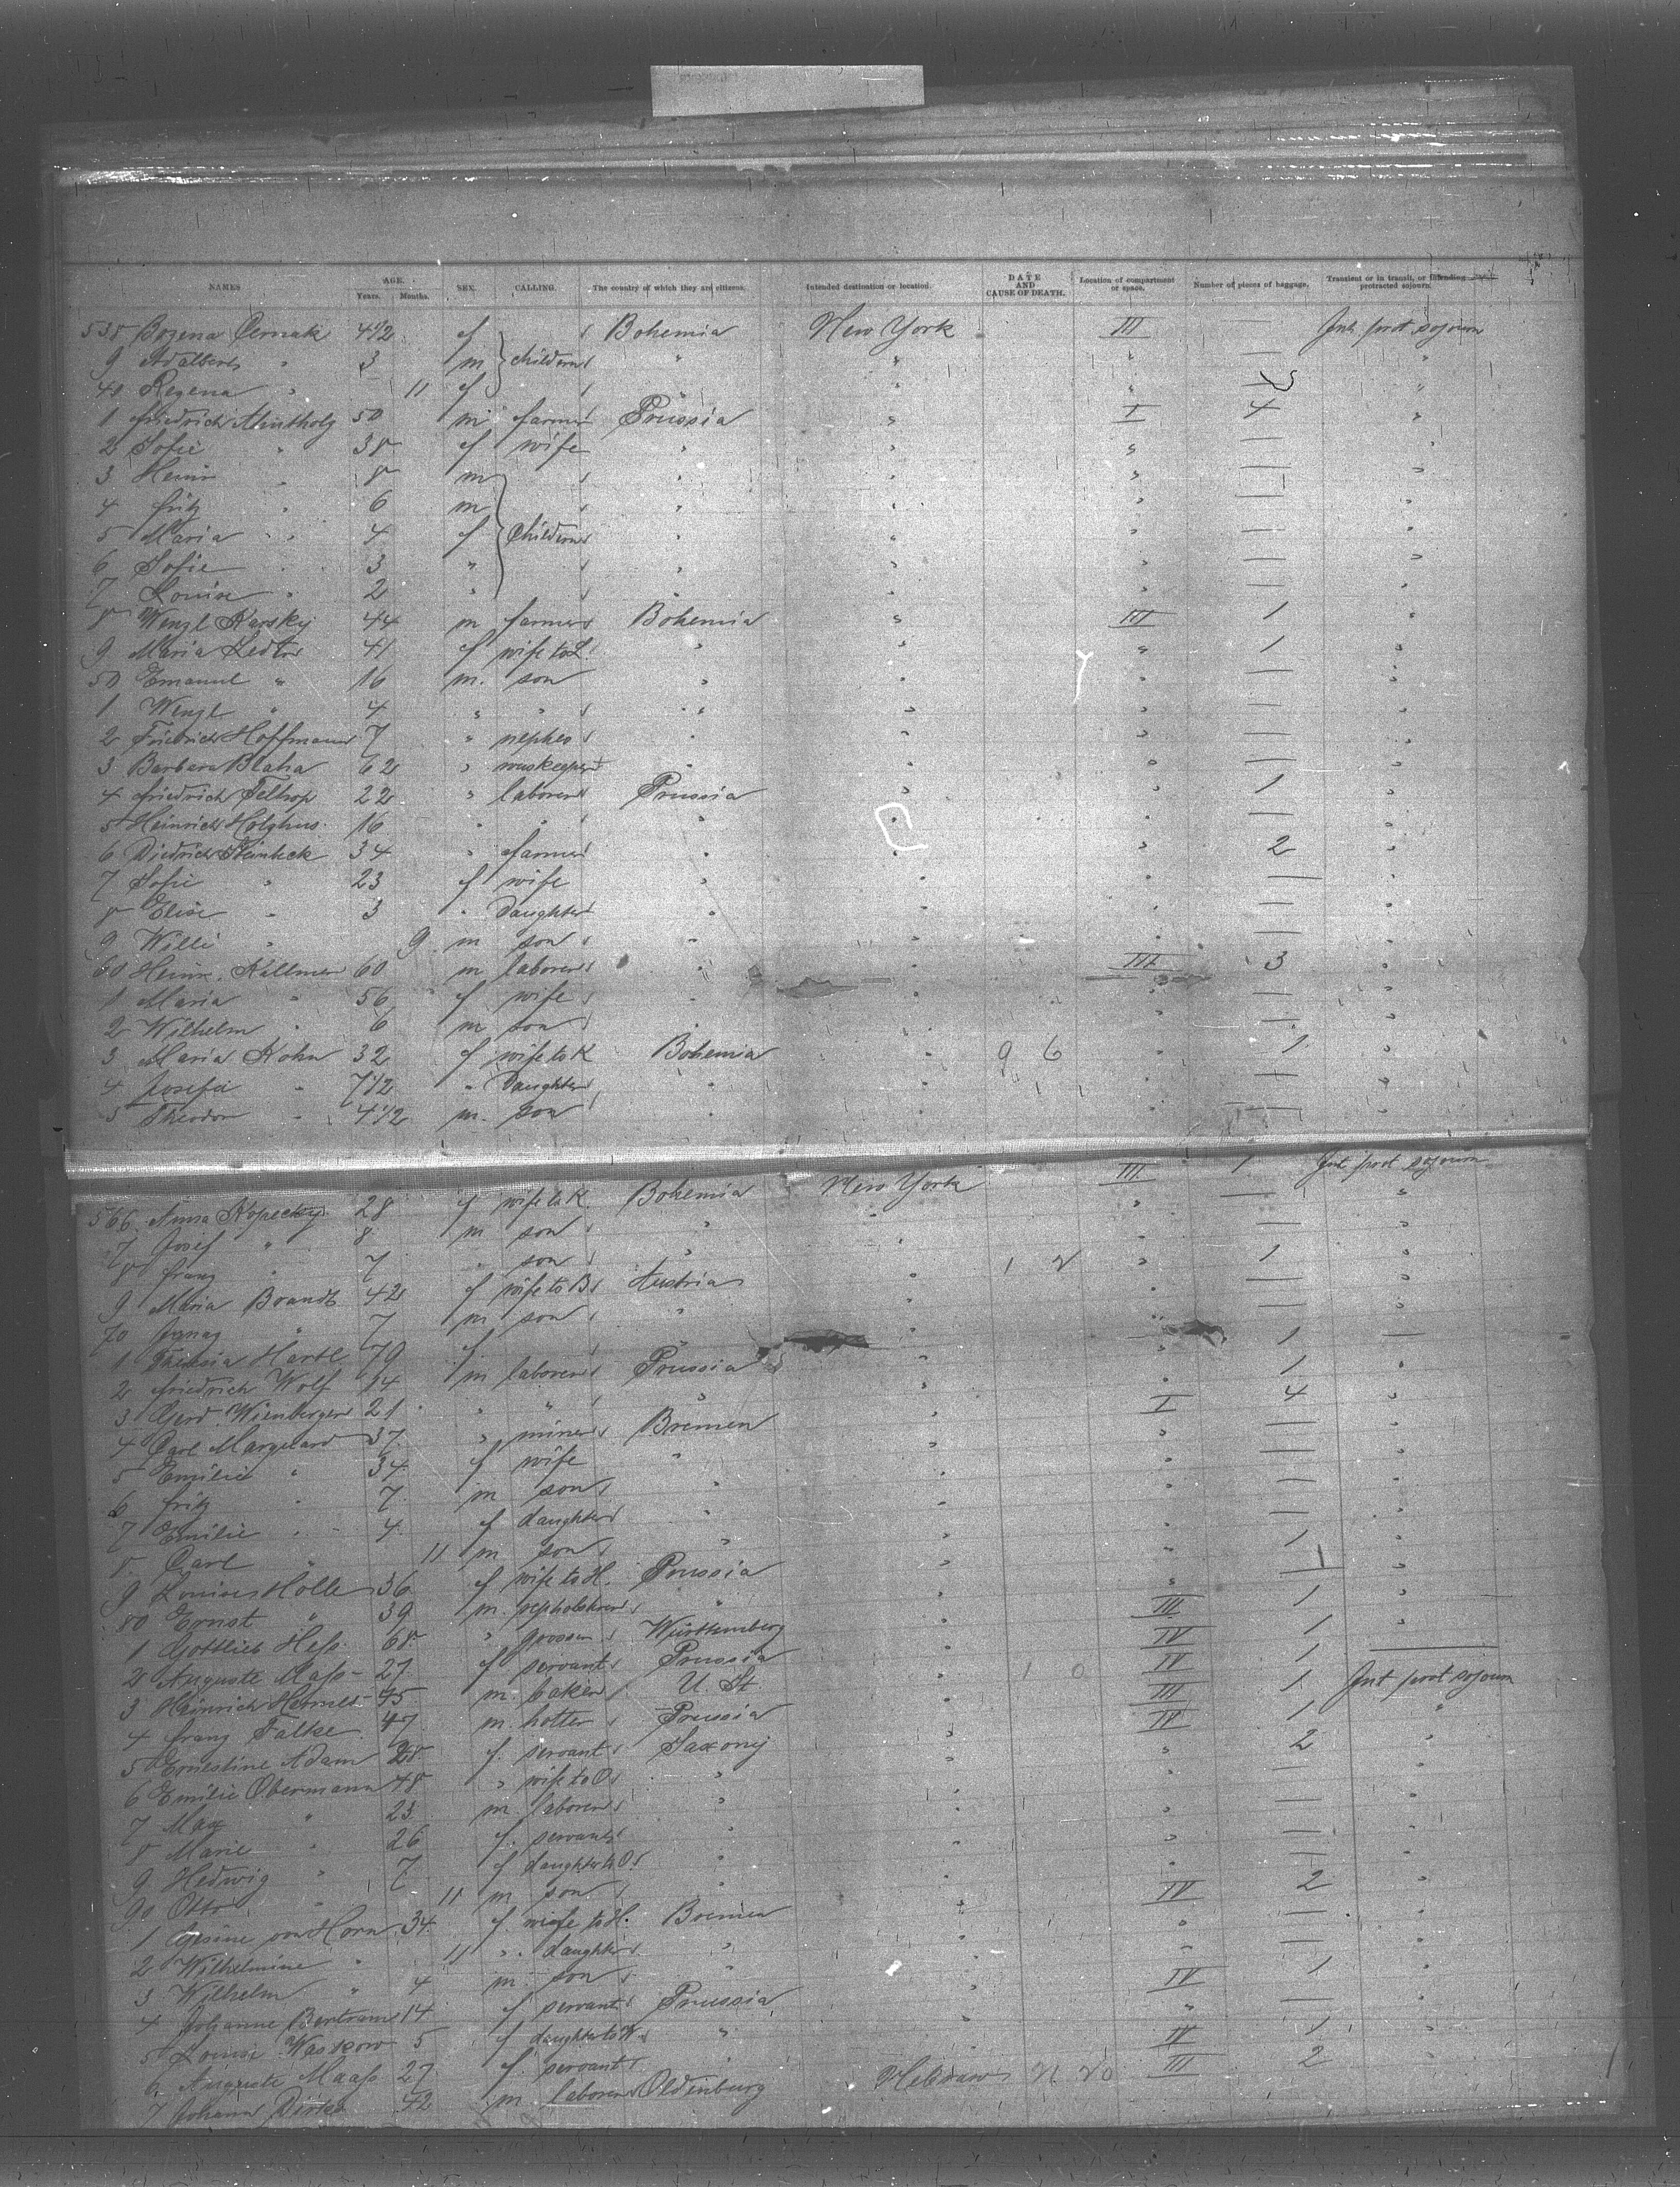 NAMES AGE. Years. Months. SEX. CALLING. The country of which they are citizens. Intended destination or location. DATE AND CAUSE OF DEATH. Location of compartment or space. Number of pieces of baggage. Transient or in transit, or intending protracted sojourn.
538 Bozena Cernak 4 1/2 f Bohemia New York III — Int prot sojourn
9 Adalbert " 3 m children " " " — "
40 Regena " 11 f " " " "
1 Friedrich 50 m farmer Prussia " I 4 "
2 Sofie " 38 f wife " " " — "
3 Heinr " 8 m " " " — "
4 Fritz " 6 m " " " — "
5 Maria " 4 f children " " " — "
6 Sofie " 3 " " " " — "
7 Louise " 2 " " " " — "
8 Wenzl Karsky 44 m farmer Bohemia " III 1 "
9 Maria 41 f wife to L. " " " 1 "
50 Emanuel " 16 m. son " " " — "
1 Wenzl " 4 " " " " " — "
2 Friedrich Hoffmann 7 " nepheo " " " — "
3 Barbara Blaha 62 " " " " — "
4 Friedrich Feltrop 22 " laborer Prussia " " 1 "
5 Heinrich Holghus 16 " " " " " — "
6 Diedrich Steinbeck 34 " farmer " " " 2 "
7 Sofie " 23 f wife " " " — "
8 Elise " 3 " daughter " " " — "
9 Willi " 9 m son " " " — "
60 Heinr. Kellmer 60 m laborer " " III 3 "
1 Maria " 56 f wife " " " — "
2 Wilhelm " 6 m son " " " — "
3 Maria Kohn 32 f wife to K Bohemia " 9 6 " 1 "
4 Josefa " 7 1/2 " daughter " " " — "
5 Theodor " 4 1/2 m. son " " " — "
566 Anna Kopecky 28 f wife to K. Bohemia New York III 1 Int prot sojourn
7 Josef " 8 m son " " " — "
8 Franz " 7 " son " " — "
9 Maria Brandt 42 f wife to B Austria " 1 2 " 1 "
70 Ignaz " 7 m son " " " — "
1 Theresia Hartl 79 f " " — "
2 Friedrich Wolf 14 m laborer Prussia " " 1 —
3 Gerd Wienberger 21 " " " " " 1 "
4 Carl Marquard 37 " miner Bremen " I 4 "
5 Emilie " 34 f wife " " " — "
6 Fritz " 7 m son " " " — "
7 Emilie " 4 f daughter " " " — "
8 Carl " 11 m son " " " — "
9 Louise Holle 36 f wife to H. Prussia " " 1 "
80 Ernst " 39 m. " " " — "
1 Gottlieb Hess 68 " Württemberg " III 1 "
2 Auguste Maass 27 f servant Prussia " IV 1 "
3 Heinrich 45 m. baker U. St. " 1 0 IV 1 ———
4 Franz Falke 47 m. hotter Prussia " III 1 Int prot sojourn
5 Ernestine Adam 28 f. servant Saxony " IV 1 "
6 Emilie Obermann 48 " wife to O " " " 2 "
7 Max " 23 m. laborer " " " — "
8 Marie " 26 f. servant " " " — "
9 Hedwig " 7 f daughter to O " " " — "
90 Otto " 11 m son " " " — "
1 Gesine von Horn 34 f. wife to H. Bremen " IV 2 "
2 Wilhelmine " 11 " daughter " " " — "
3 Wilhelm " 4 m son " " " — "
4 Johanne Bertram 14 f servant Prussia " IV 1 "
5 Louise Waskow 5 f daughter to W. " " " — "
6 Auguste Maass 27 f. servant " IV 1 "
7 Johann Dirks 42 m laborer Oldenburg III 2